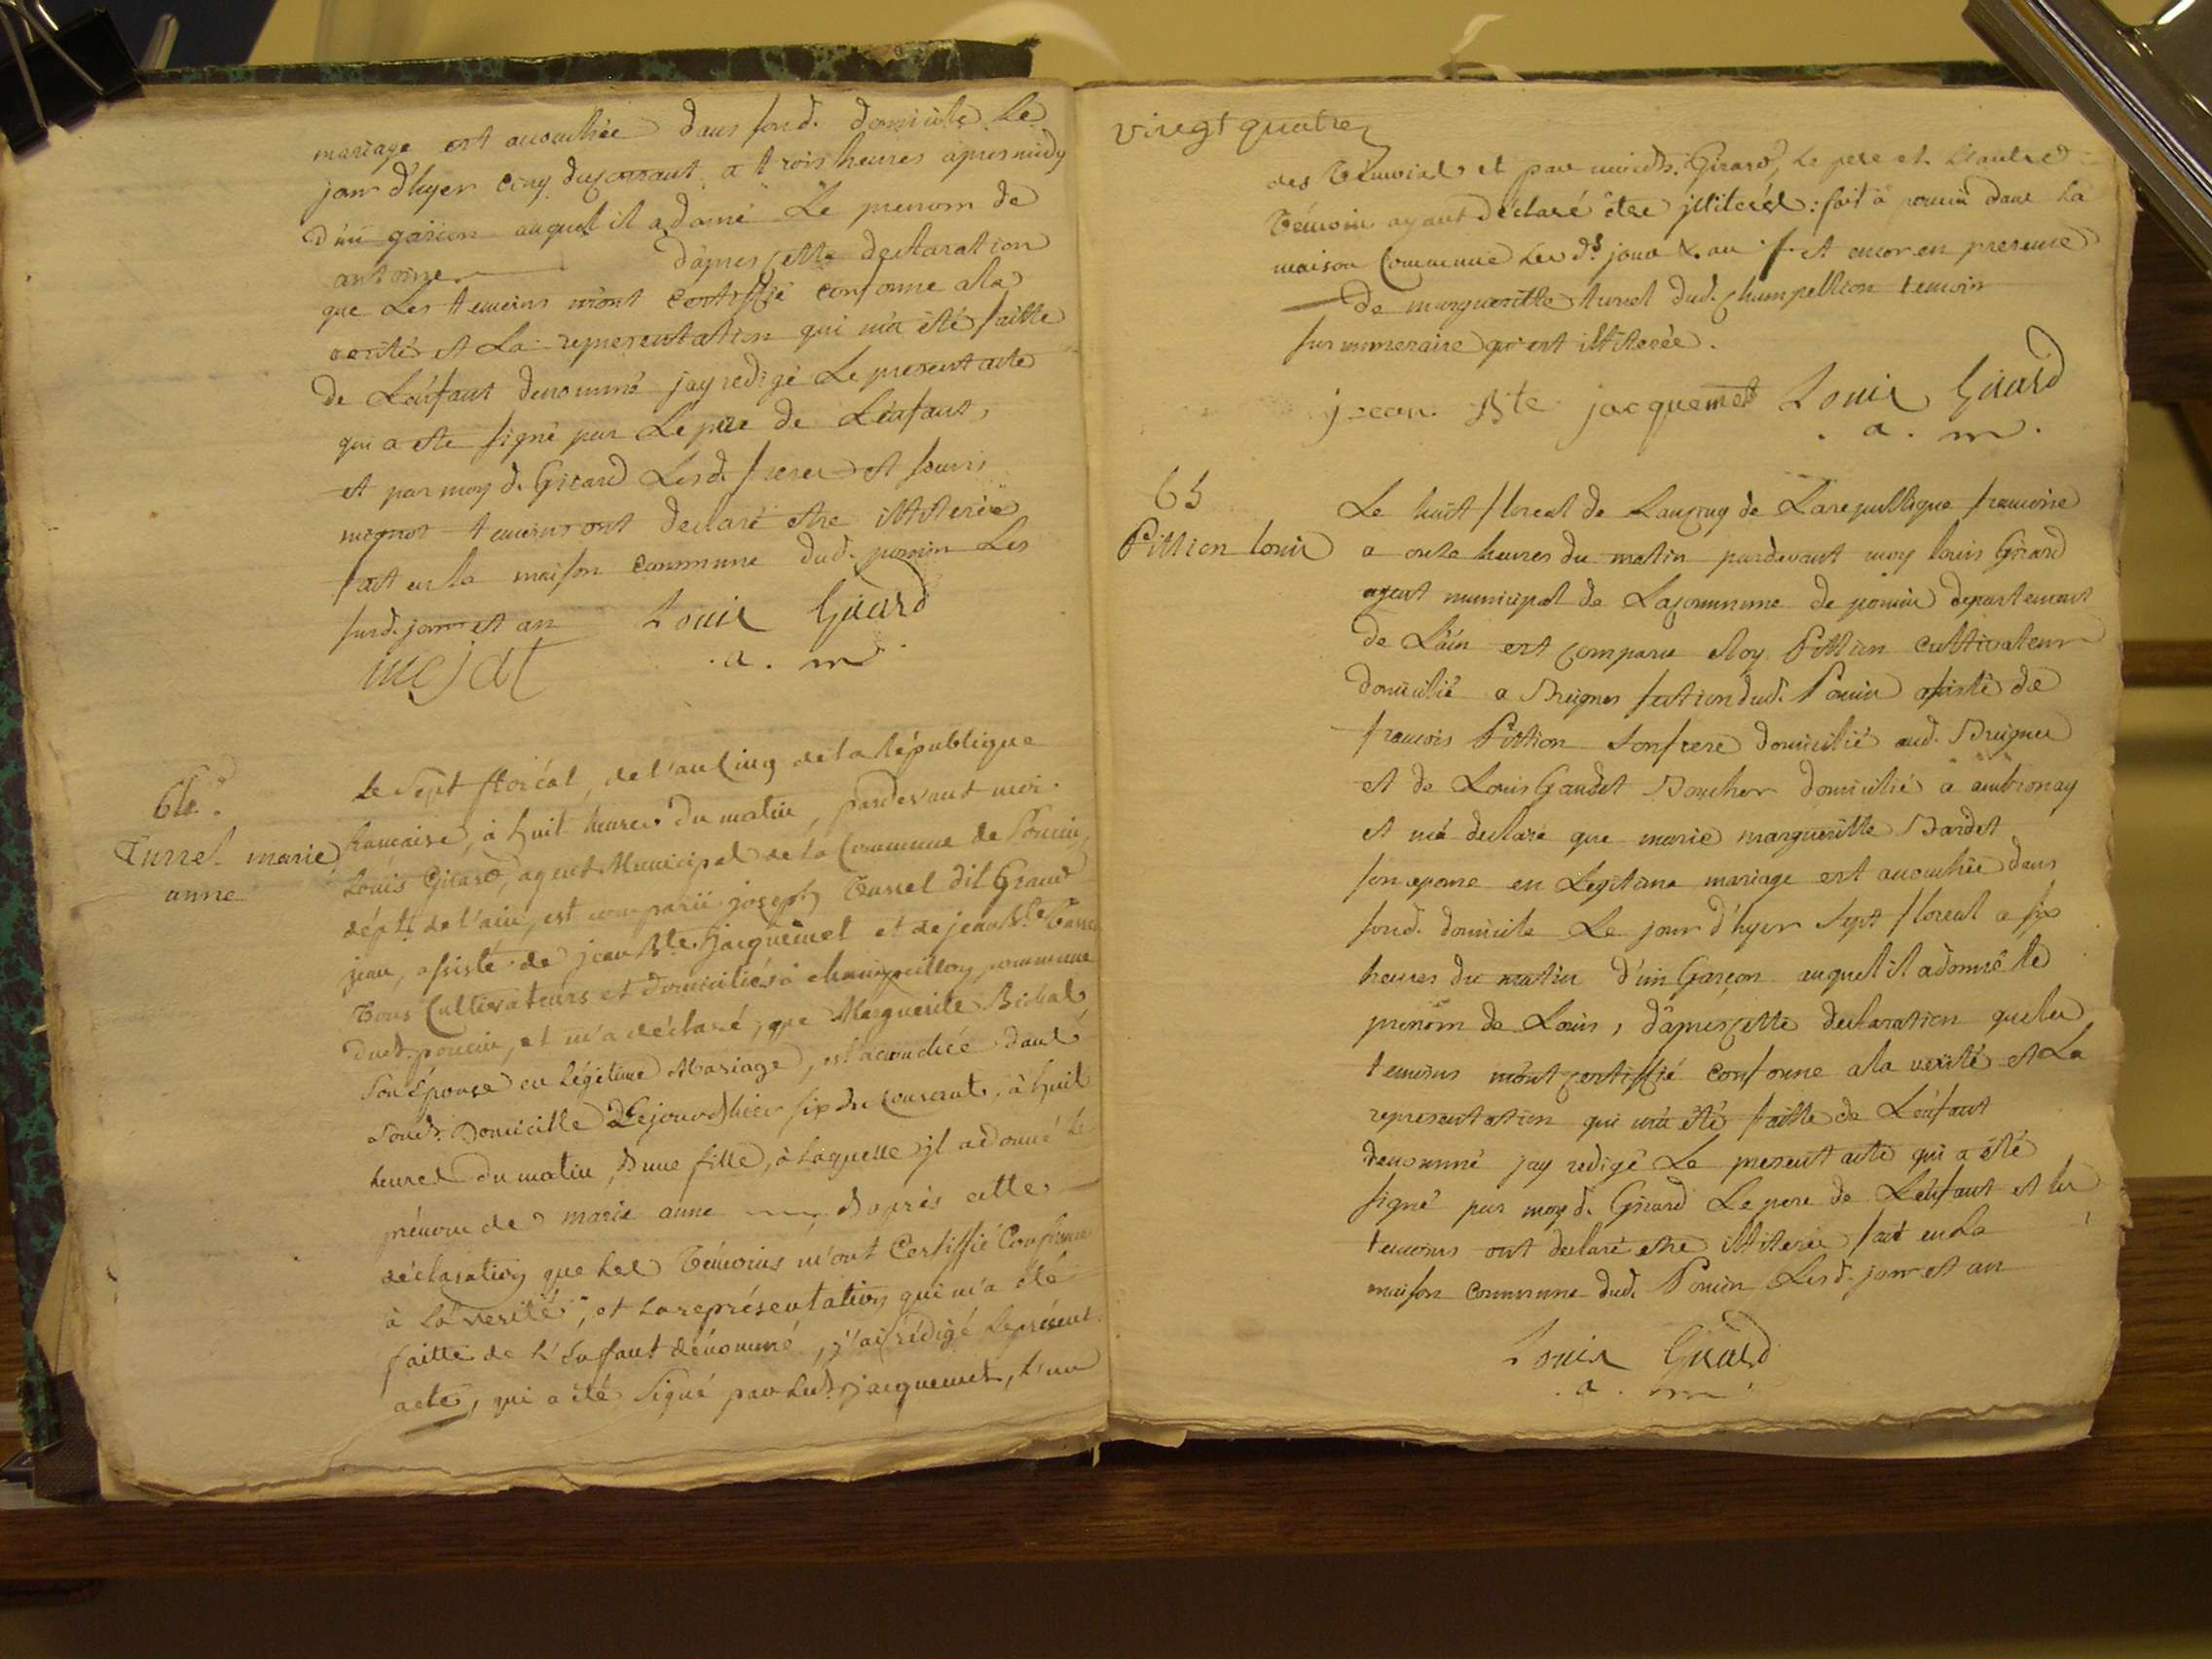 mariage est accouchée dans sond. domicile Le
jour d'hyer cinq du courant a trois heures apres midy
d'un garçon auquel il a donné Le prenom de
antoine d'apres cette declaration
que Les temoins m'ont certiffié conforme a la
verité et La representation qui m'a été faitte
de L'enfant denommé jay redigé Le present acte
qui a ete signé par Le pere de L'enfant,
et par moy d. Girard Lesd. freres et
mignot temoins ont declaré etre illiteré
fait en la maison commune dud. poncin Les
susd. jour et an Louis Girard
mejat . a . m .
64.
Turrel marie
anne
le Sept floréal, de l'an Cinq de la République
française, à huit heures du matin, pardevant moi
Louis Girard, agent Municipal de la Commune de Poncin,
dépt. de l'ain, est comparü joseph Turrel dit Grand
jean, assisté de jean Bte. Jacquemet et de jean Bte.
tous Cultivateurs et domiciliés à champeillon, commune
dud. poncin, et m'a déclaré, que Marguerite
son épouse en légitime Mariage, est acouchée dans
soud. Domicille Le jour d'hier six du Courant, à huit
heures du matin, d'une fille, à laquelle il a donné le
prénom de marie anne D'après cette
déclaration que Les Témoins m'ont Certiffié Conforme
à la verité, et la représentation qui m'a été
faitte de L'Enfant dénommé, j'ai rédigé le présent
acte, qui a été Signé par Led. jacquemet, l'un
vingt quatre
des Témoins et par moi d. Girard, le pere et l'autre
Témoin ayant déclaré être jlliterés : fait à poncin dans la
maison Commune Les ds. jour & an et encor en presence
de margueritte turrel dud. champellion temoin
surnumeraire qui est illiterée.
jean Bte jacquemet Louis Girard
. a . m .
65
Pittion Louis
Le huit floreal de Lan cinq de La republique francoise
a onze heures du matin pardevant moy louis Girard
agent municipal de La commune de poncin departement
de L'ain est comparu eloy Pittion cultivateur
domicilié a Breignes section dud. Poncin assisté de
francois Pittion son frere domicilié aud. Breignes
et de Louis Gaudet Boucher domicilié a ambronay
et m'a declaré que marie margueritte Bardet
son epouse en Legitime mariage est accouchée dans
sond. domicile Le jour d'hyer sept floreal a six
heures du matin d'un Garçon auquel il a donné le
prenom de Louis, d'apres cette declaration que les
temoins m'ont certiffié conforme a la verité et La
representation qui m'a été faitte de L'enfant
denommé jay redigé Le present acte qui a été
signé par moy d. Girard Le pere de L'enfant et les
temoins ont declaré etre illiterée fait en La
maison commune dud. Poncin Lesd. jour et an
Louis Girard
. a . m .